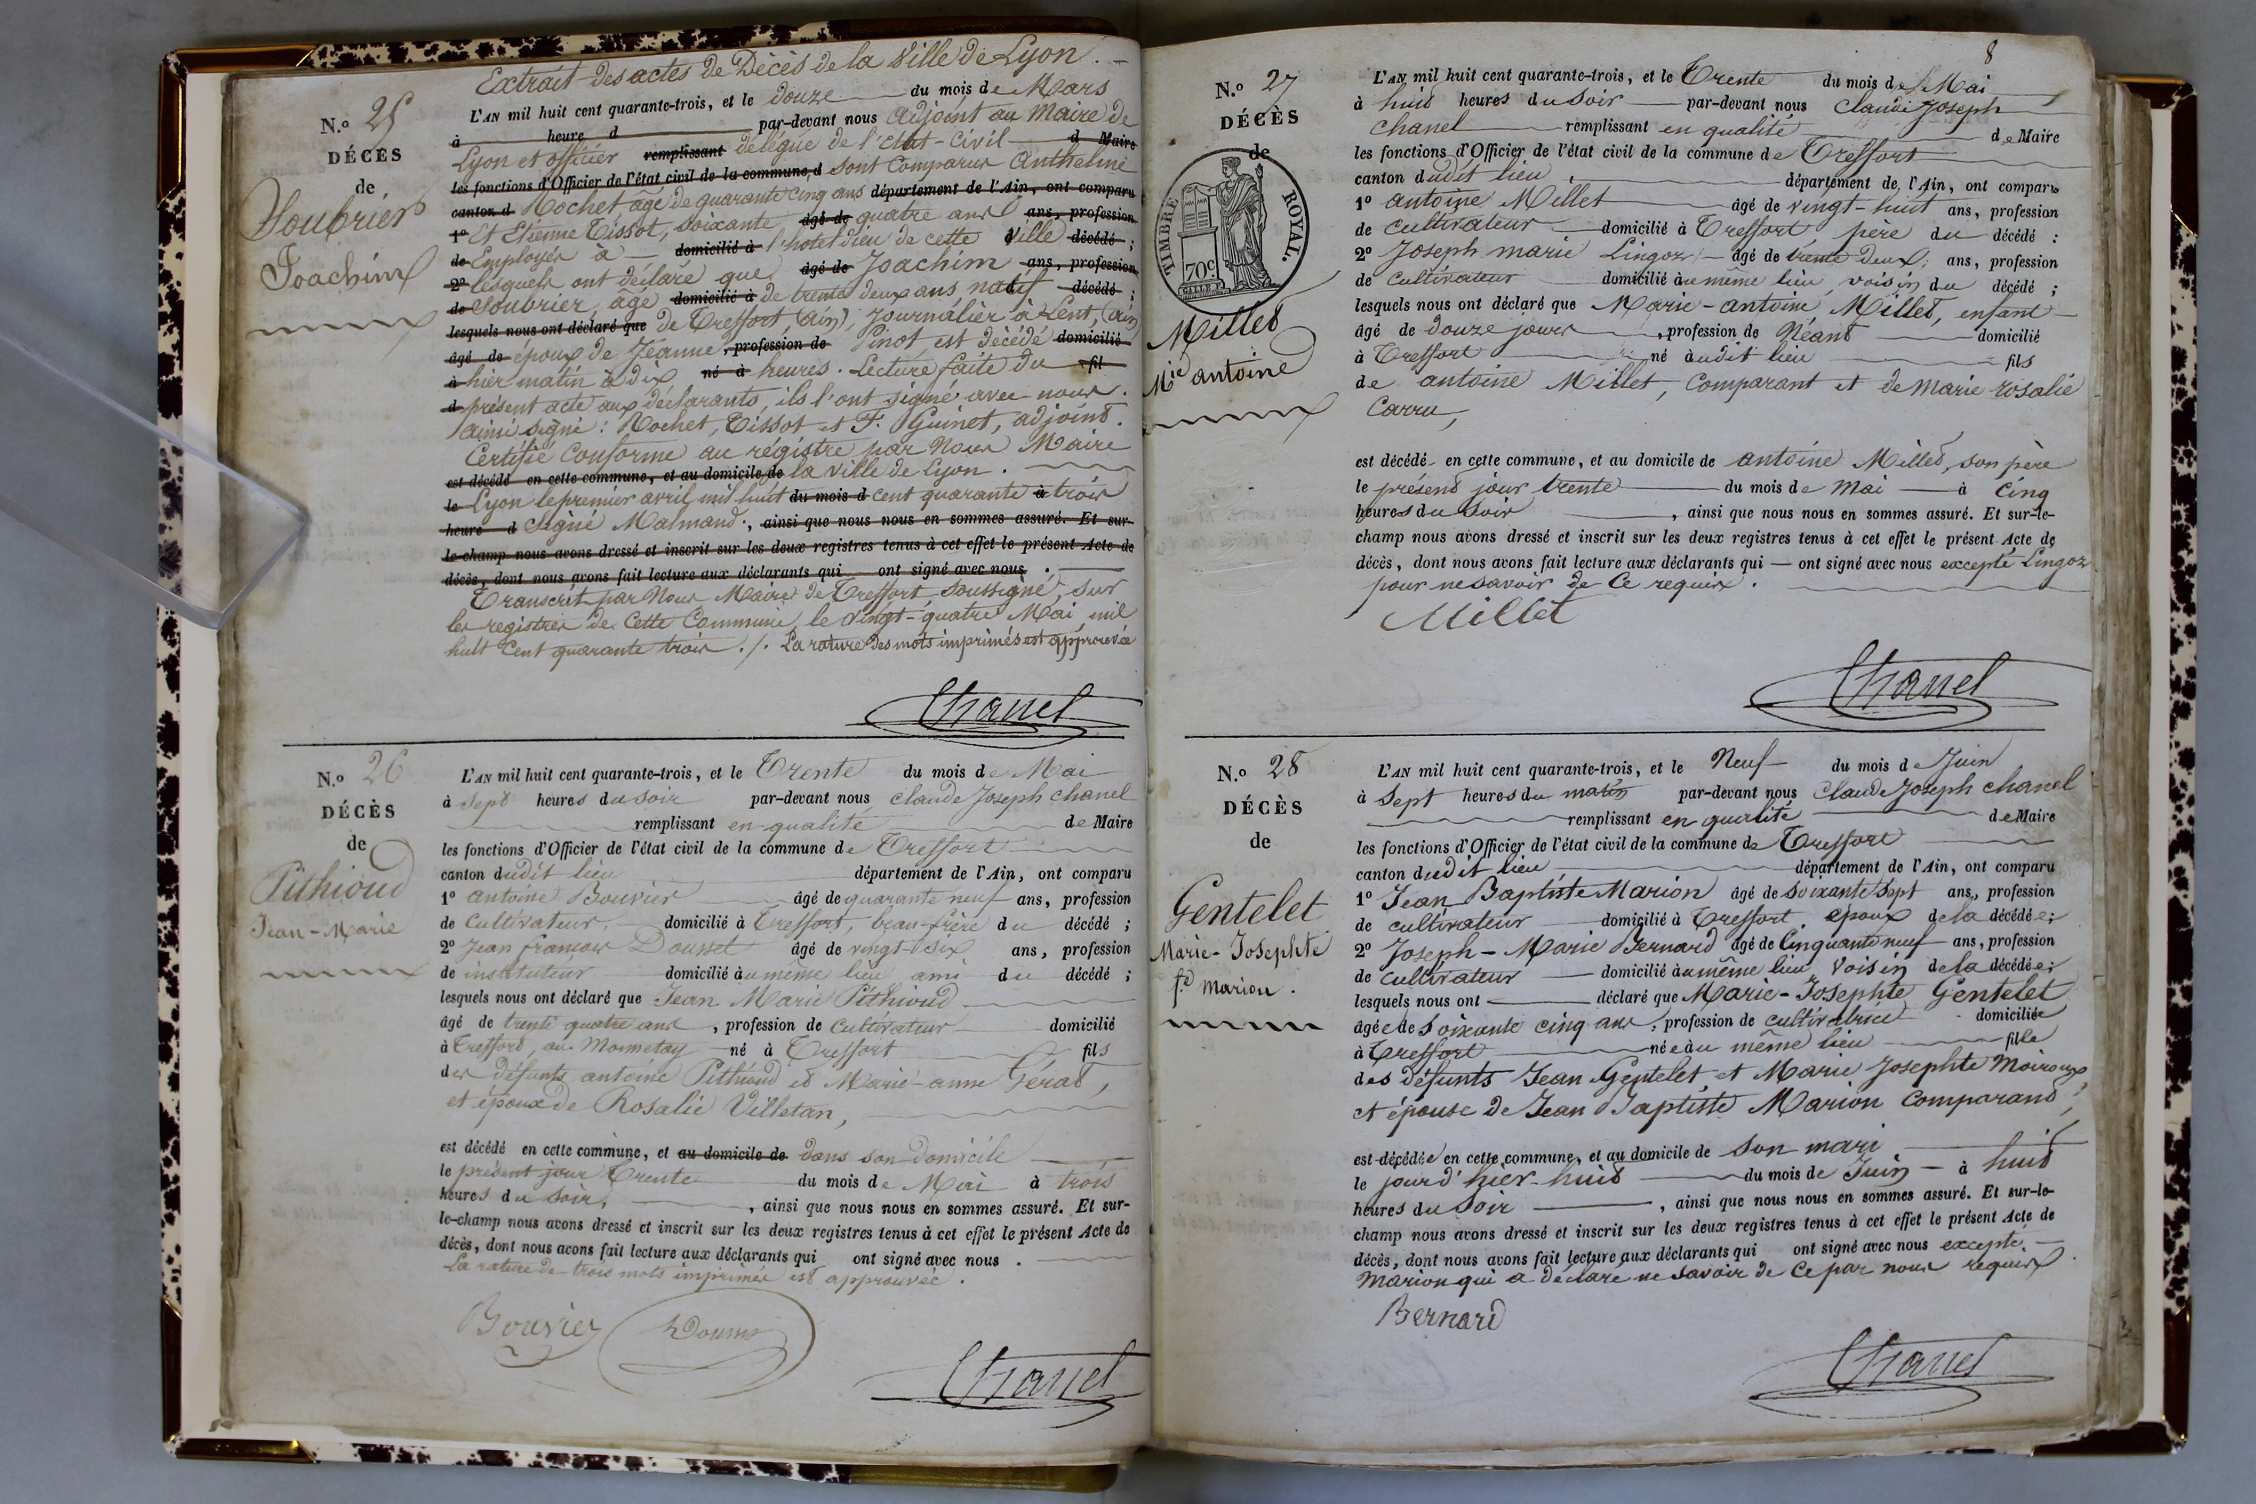 Extrait des actes de Décès de la Ville de Lyon. —
N.º 25
DÉCÈS
de
Soubrier
Joachim
L'AN mil huit cent quarante-trois, et le douze du mois de Mars
à heure d par-devant nous adjoint au Maire de
Lyon et officier remplissant délégué de l'Etat-Civil d Maire
les fonctions d'Officier de l'état civil de la commune d sont Comparus Anthelme
canton d Rochet agé de quarante cinq ans département de l'Ain, ont comparu
1º Et Etienne Tissot, soixante âgé de quatre ans ans, profession
de Employés à domicilié à l'hotel Dieu de cette Ville décédé ;
2º lesquels ont déclaré que âgé de Joachim ans, profession
de Soubrier, agé domicilié à de trente deux ans natif décédé ;
lesquels nous ont déclaré que de Treffort (ain), Journalier à Lent, (ain)
âgé de époux de Jeanne , profession de Pinot est décédé domicilié
à hier matin à dix né à heures. Lecture faite du fil
d présent acte aux déclarants, ils l'ont signé avec nous.
ainsi signé : Rochet, Tissot et F. Guinet, adjoint.
Certifié Conforme au régistre par Nous Maire
est décédé en cette commune, et au domicile de la ville de Lyon.
le Lyon le premier avril mil huit du mois d cent quarante à trois
heure d signé Malmand. , ainsi que nous nous en sommes assuré. Et sur-
le-champ nous avons dressé et inscrit sur les deux registres tenus à cet effet le présent Acte de
décès, dont nous avons fait lecture aux déclarants qui ont signé avec nous .
Transcrit par Nous Maire de Treffort soussigné, sur
les registres de Cette Commune, le vingt-quatre Mai mil
huit Cent quarante trois ./. La rature des mots imprimés est approuvée
Chanel
N.º 26
DÉCÈS
de
Pithioud
Jean-Marie
L'AN mil huit cent quarante-trois, et le Trente du mois de Mai
à sept heures du soir par-devant nous Claude Joseph Chanel
remplissant en qualité de Maire
les fonctions d'Officier de l'état civil de la commune de Treffort
canton dudit lieu département de l'Ain, ont comparu
1º antoine Bouvier âgé de quarante neuf ans, profession
de Cultivateur, domicilié à Treffort, beau-frère du décédé ;
2º Jean françois Dousset âgé de vingt-six ans, profession
de instituteur domicilié au même lieu ami du décédé ;
lesquels nous ont déclaré que Jean Marie Pithioud
âgé de trente quatre ans , profession de Cultivateur domicilié
à Treffort, au Monnetay né à Treffort fils
des défunts antoine Pithioud et Marie-anne Gérat,
et époux de Rosalie Villetan,
est décédé en cette commune, et au domicile de dans son domicile
le présent jour Trente du mois de Mai à trois
heures du soir, , ainsi que nous nous en sommes assuré. Et sur-
le-champ nous avons dressé et inscrit sur les deux registres tenus à cet effet le présent Acte de
décès, dont nous avons fait lecture aux déclarants qui ont signé avec nous .
La rature de trois mots imprimés est approuvée.
Bouvier
Chanel
8
N.º 27
DÉCÈS
de
TIMBRE ROYAL.
70 c
Millet
Mie antoine
L'AN mil huit cent quarante-trois, et le Trente du mois de Mai
à huit heures du Soir par-devant nous Claude Joseph
Chanel remplissant en qualité de Maire
les fonctions d'Officier de l'état civil de la commune de Treffort
canton dudit lieu département de l'Ain, ont comparu
1º antoine Millet âgé de vingt-huit ans, profession
de cultivateur domicilié à Treffort père du décédé :
2º Joseph marie Lingoz âgé de trente deux ans, profession
de cultivateur domicilié au même lieu, voisin du décédé ;
lesquels nous ont déclaré que Marie-antoine Millet, enfant
âgé de douze jours , profession de Néant domicilié
à Treffort né audit lieu fils
de antoine Millet, comparant et de Marie rosalie
Carru,
est décédé en cette commune, et au domicile de antoine Millet, son père
le présent jour trente du mois de mai à cinq
heures du Soir , ainsi que nous nous en sommes assuré. Et sur-le-
champ nous avons dressé et inscrit sur les deux registres tenus à cet effet le présent Acte de
décès, dont nous avons fait lecture aux déclarants qui — ont signé avec nous excepté Lingoz
pour ne savoir de Ce requis.
Millet
Chanel
N.º 28
DÉCÈS
de
Gentelet
Marie-Josephte
f.e Marion.
L'AN mil huit cent quarante-trois, et le Neuf du mois de Juin
à Sept heures du matin par-devant nous Claude Joseph Chanel
remplissant en qualité de Maire
les fonctions d'Officier de l'état civil de la commune de Treffort
canton dudit lieu département de l'Ain, ont comparu
1º Jean Baptiste Marion âgé de soixante sept ans, profession
de cultivateur domicilié à Treffort, époux de la décédée ;
2º Joseph-Marie Bernard âgé de Cinquante neuf ans, profession
de cultivateur domicilié au même lieu voisin de la décédée ;
lesquels nous ont déclaré que Marie-Josephte Gentelet
âgée de Soixante cinq ans , profession de cultivatrice domiciliée
à Treffort née au même lieu fille
des défunts Jean Gentelet et Marie Josephte Moiroux,
et épouse de Jean Baptiste Marion Comparant,
est décédée en cette commune, et au domicile de son mari
le jour d'hier huit du mois de Juin à huit
heures du soir , ainsi que nous nous en sommes assuré. Et sur-le-
champ nous avons dressé et inscrit sur les deux registres tenus à cet effet le présent Acte de
décès, dont nous avons fait lecture aux déclarants qui ont signé avec nous excepté
Marion qui a déclaré ne savoir de Ce par nous requis
Bernard
Chanel